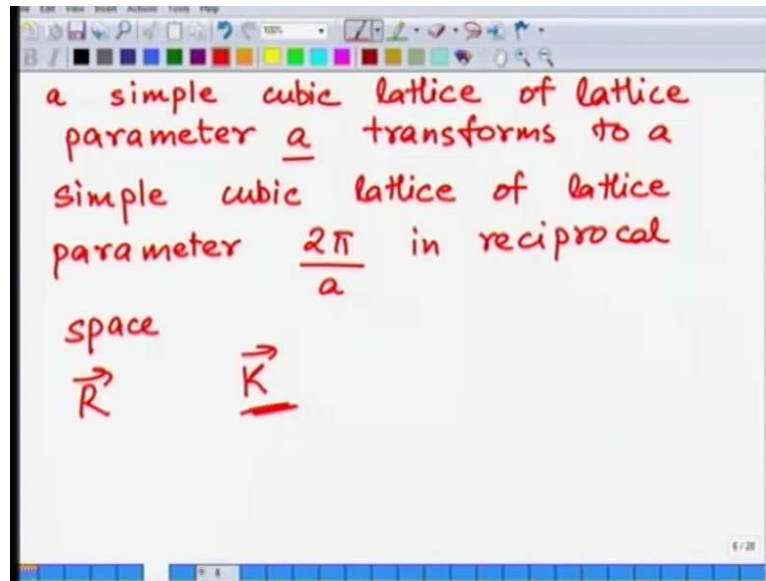 Edit View Insert Actions Tools Help
100%
B I
a simple cubic lattice of lattice
parameter a transforms to a
simple cubic lattice of lattice
parameter 2π/a in reciprocal
space
R⃗ K⃗
6/28
8